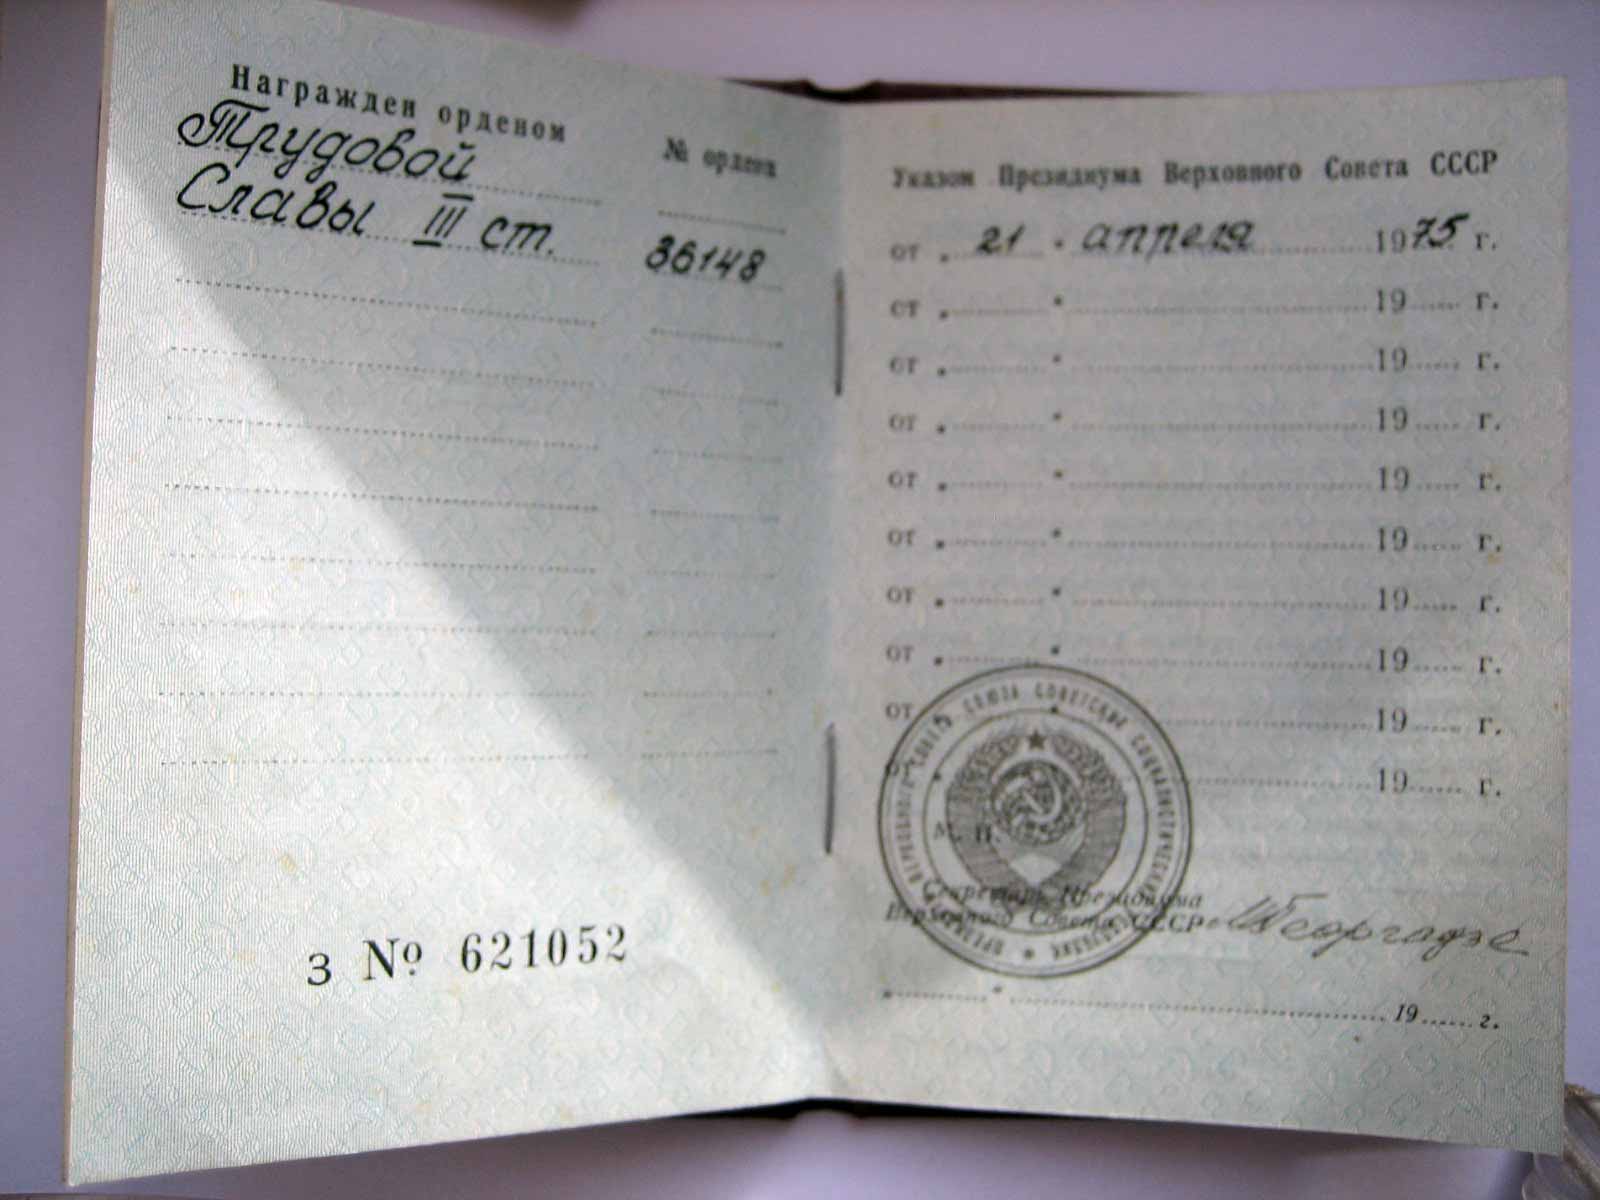 Награжден орденом
№ ордена
Трудовой
Славы III ст. 36148
З № 621052
Указом Президиума Верховного Совета СССР
от „ 21 " апреля 1975 г.
от „ " 19 г.
от „ " 19 г.
от „ " 19 г.
от „ " 19 г.
от „ " 19 г.
от „ " 19 г.
от „ " 19 г.
от 19 г.
19 г.
М. П.
Секретарь Президиума
Верховного Совета СССР Георгадзе
" 19 г.
ПРЕЗИДИУМ ВЕРХОВНОГО СОВЕТА СОЮЗА СОВЕТСКИХ СОЦИАЛИСТИЧЕСКИХ РЕСПУБЛИК